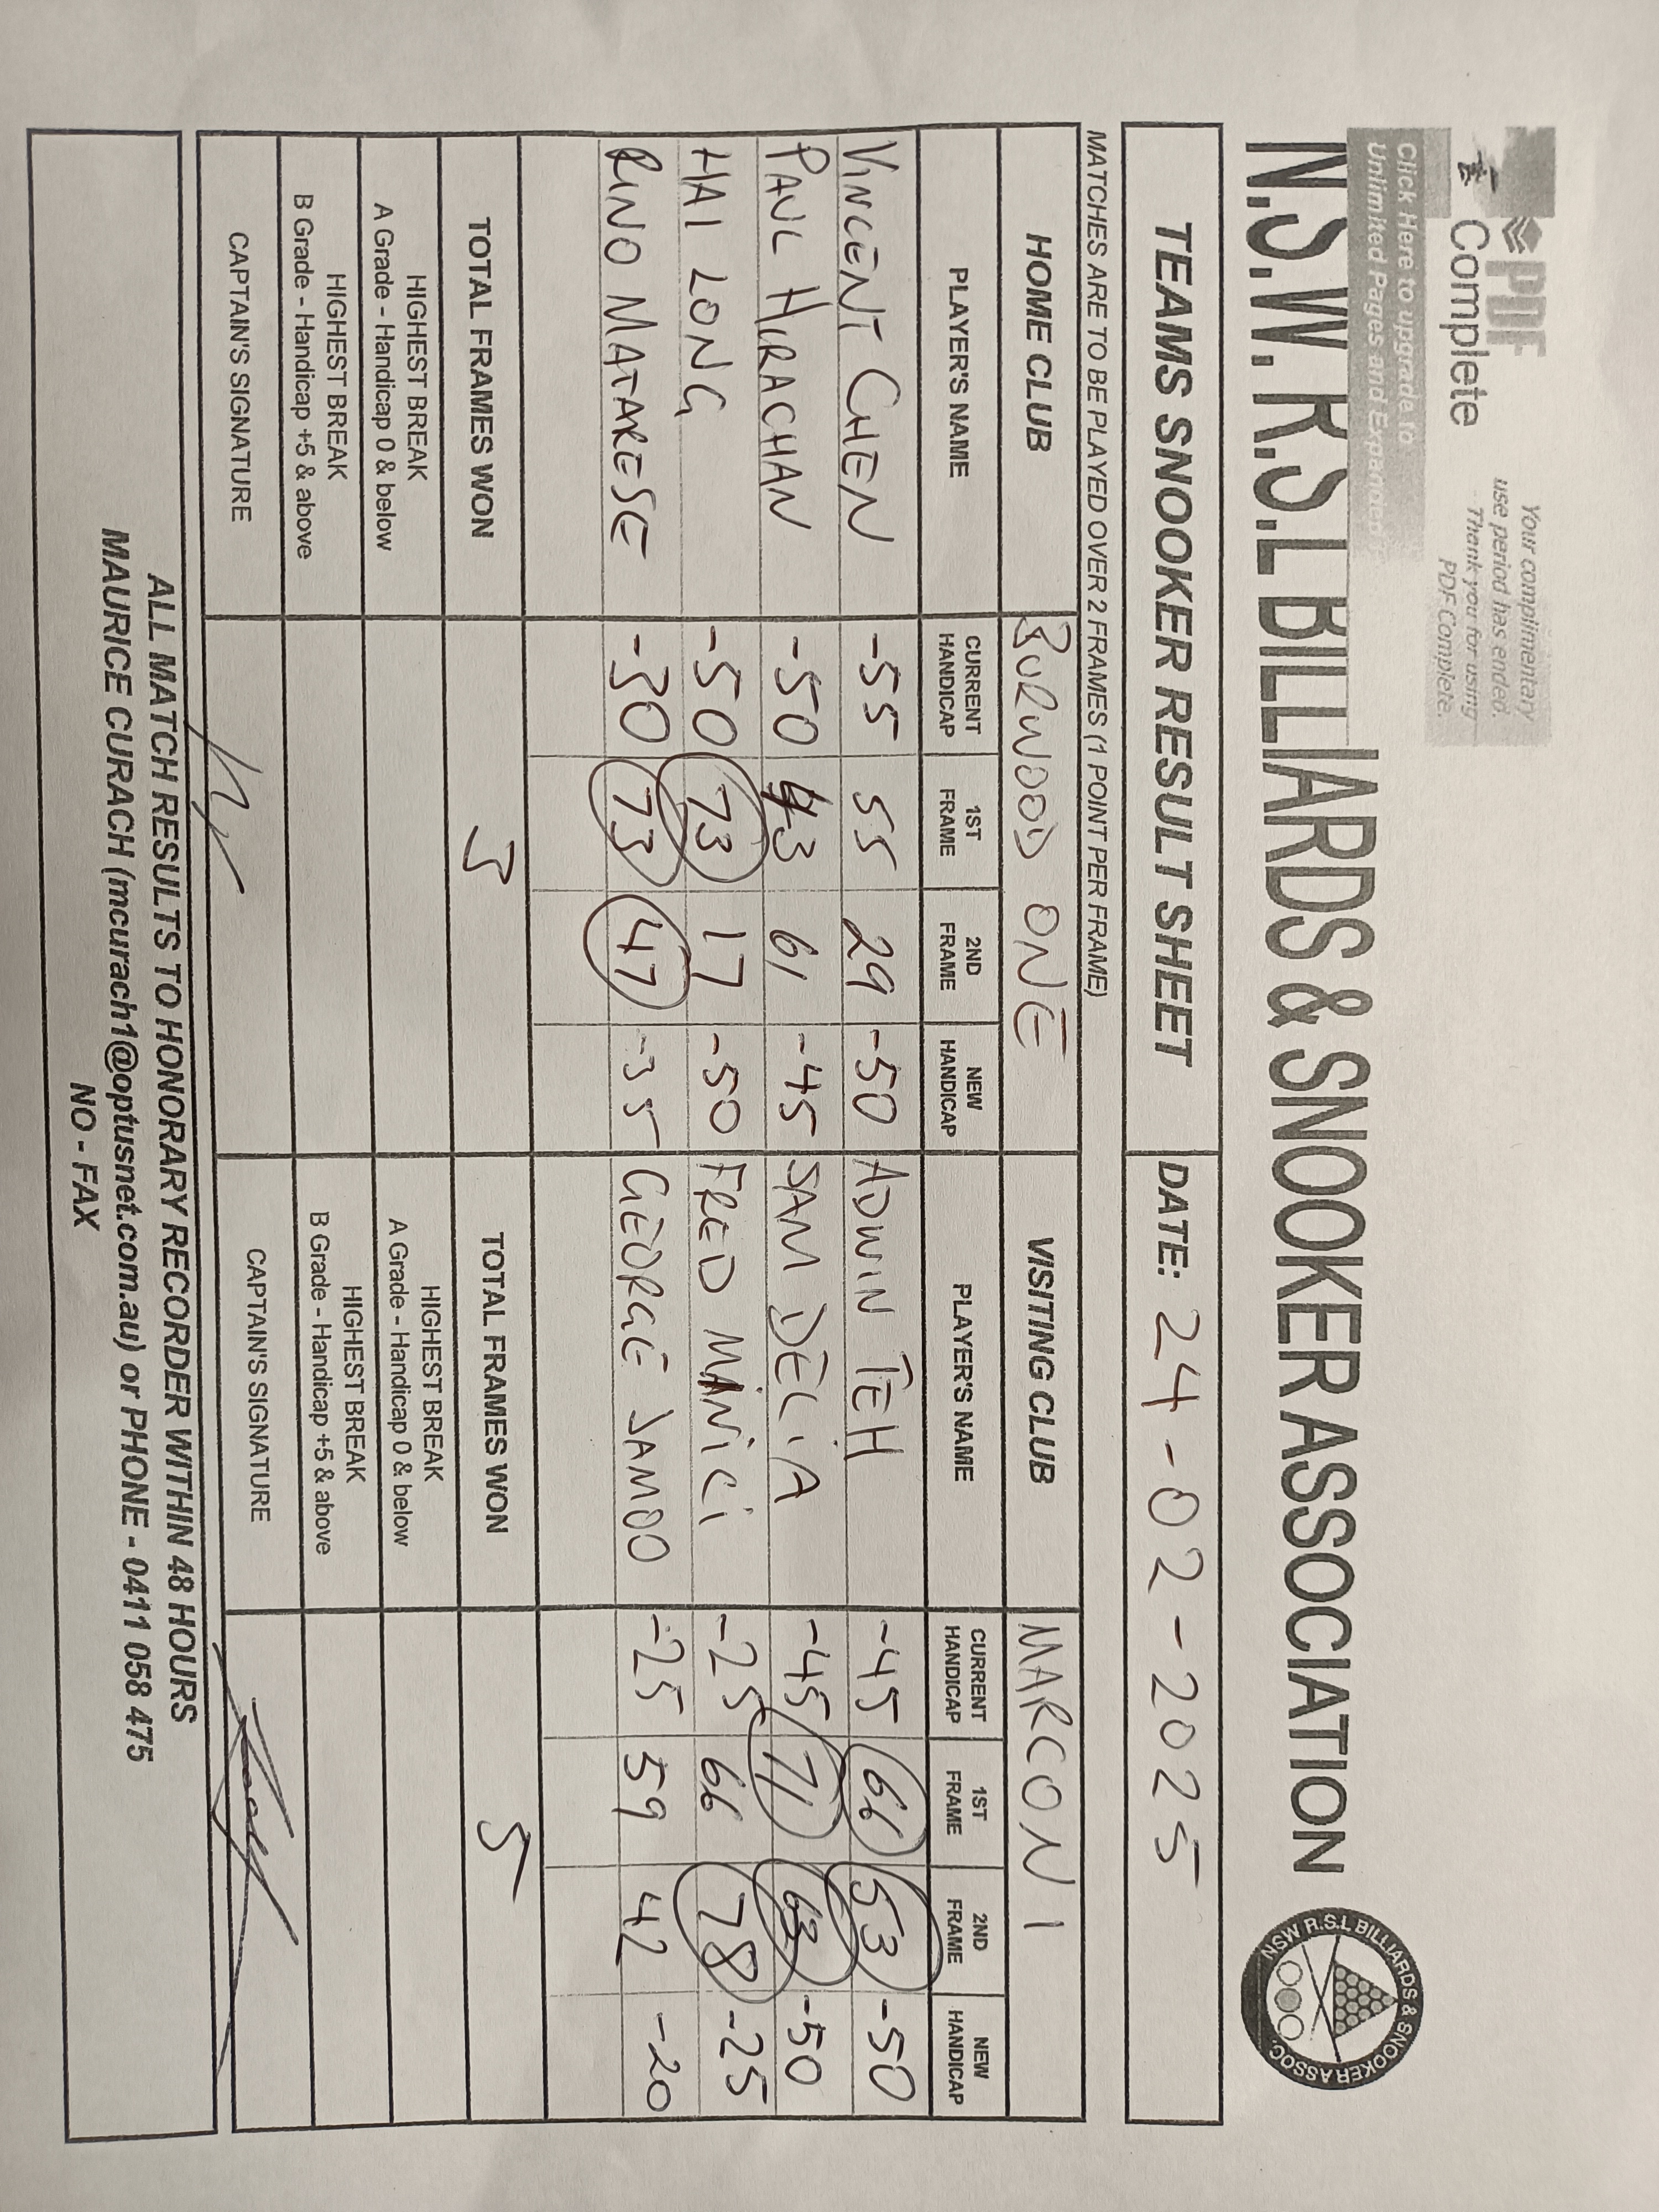 PDF Complete
Your complimentary
use period has ended.
Thank you for using
PDF Complete.
Click Here to upgrade to
Unlimited Pages and Expanded
N.S.W. R.S.L BILLIARDS & SNOOKER ASSOCIATION
NSW R.S.L BILLIARDS & SNOOKER ASSOC.
TEAMS SNOOKER RESULT SHEET DATE: 24-02-2025
MATCHES ARE TO BE PLAYED OVER 2 FRAMES (1 POINT PER FRAME)
HOME CLUB BURWOOD ONE VISITING CLUB MARCONI
PLAYER'S NAME CURRENT HANDICAP 1ST FRAME 2ND FRAME NEW HANDICAP PLAYER'S NAME CURRENT HANDICAP 1ST FRAME 2ND FRAME NEW HANDICAP
VINCENT CHEN -55 55 29 -50 ADWIN TEH -45 66 53 -50
PAUL HURACHAN -50 43 61 -45 SAM DELIA -45 71 63 -50
HAI LONG -50 73 17 -50 FRED MANICI -25 66 78 -25
RINO MATARESE -30 73 47 -35 GEORGE JAMOO -25 59 42 -20
TOTAL FRAMES WON 3 TOTAL FRAMES WON 5
HIGHEST BREAK HIGHEST BREAK
A Grade - Handicap 0 & below A Grade - Handicap 0 & below
HIGHEST BREAK HIGHEST BREAK
B Grade - Handicap +5 & above B Grade - Handicap +5 & above
CAPTAIN'S SIGNATURE CAPTAIN'S SIGNATURE
ALL MATCH RESULTS TO HONORARY RECORDER WITHIN 48 HOURS
MAURICE CURACH (mcurach1@optusnet.com.au) or PHONE - 0411 058 475
NO - FAX